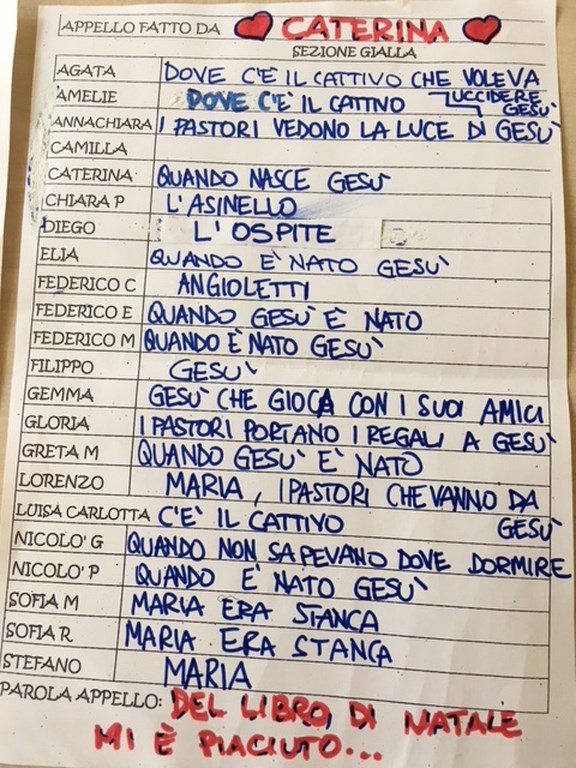 APPELLO FATTO DA CATERINA
SEZIONE GIALLA
AGATA DOVE C'È IL CATTIVO CHE VOLEVA UCCIDERE GESÙ
AMELIE DOVE C'È IL CATTIVO
ANNACHIARA I PASTORI VEDONO LA LUCE DI GESÙ
CAMILLA
CATERINA QUANDO NASCE GESÙ
CHIARA P L'ASINELLO
DIEGO L'OSPITE
ELIA QUANDO È NATO GESÙ
FEDERICO C ANGIOLETTI
FEDERICO E QUANDO GESÙ È NATO
FEDERICO M QUANDO È NATO GESÙ
FILIPPO GESÙ
GEMMA GESÙ CHE GIOCA CON I SUOI AMICI
GLORIA I PASTORI PORTANO I REGALI A GESÙ
GRETA M QUANDO GESÙ È NATO
LORENZO MARIA, I PASTORI CHE VANNO DA GESÙ
LUISA CARLOTTA C'È IL CATTIVO
NICOLO' G QUANDO NON SAPEVANO DOVE DORMIRE
NICOLO' P QUANDO È NATO GESÙ
SOFIA M MARIA ERA STANCA
SOFIA R MARIA ERA STANCA
STEFANO MARIA
PAROLA APPELLO: DEL LIBRO DI NATALE
MI È PIACIUTO...